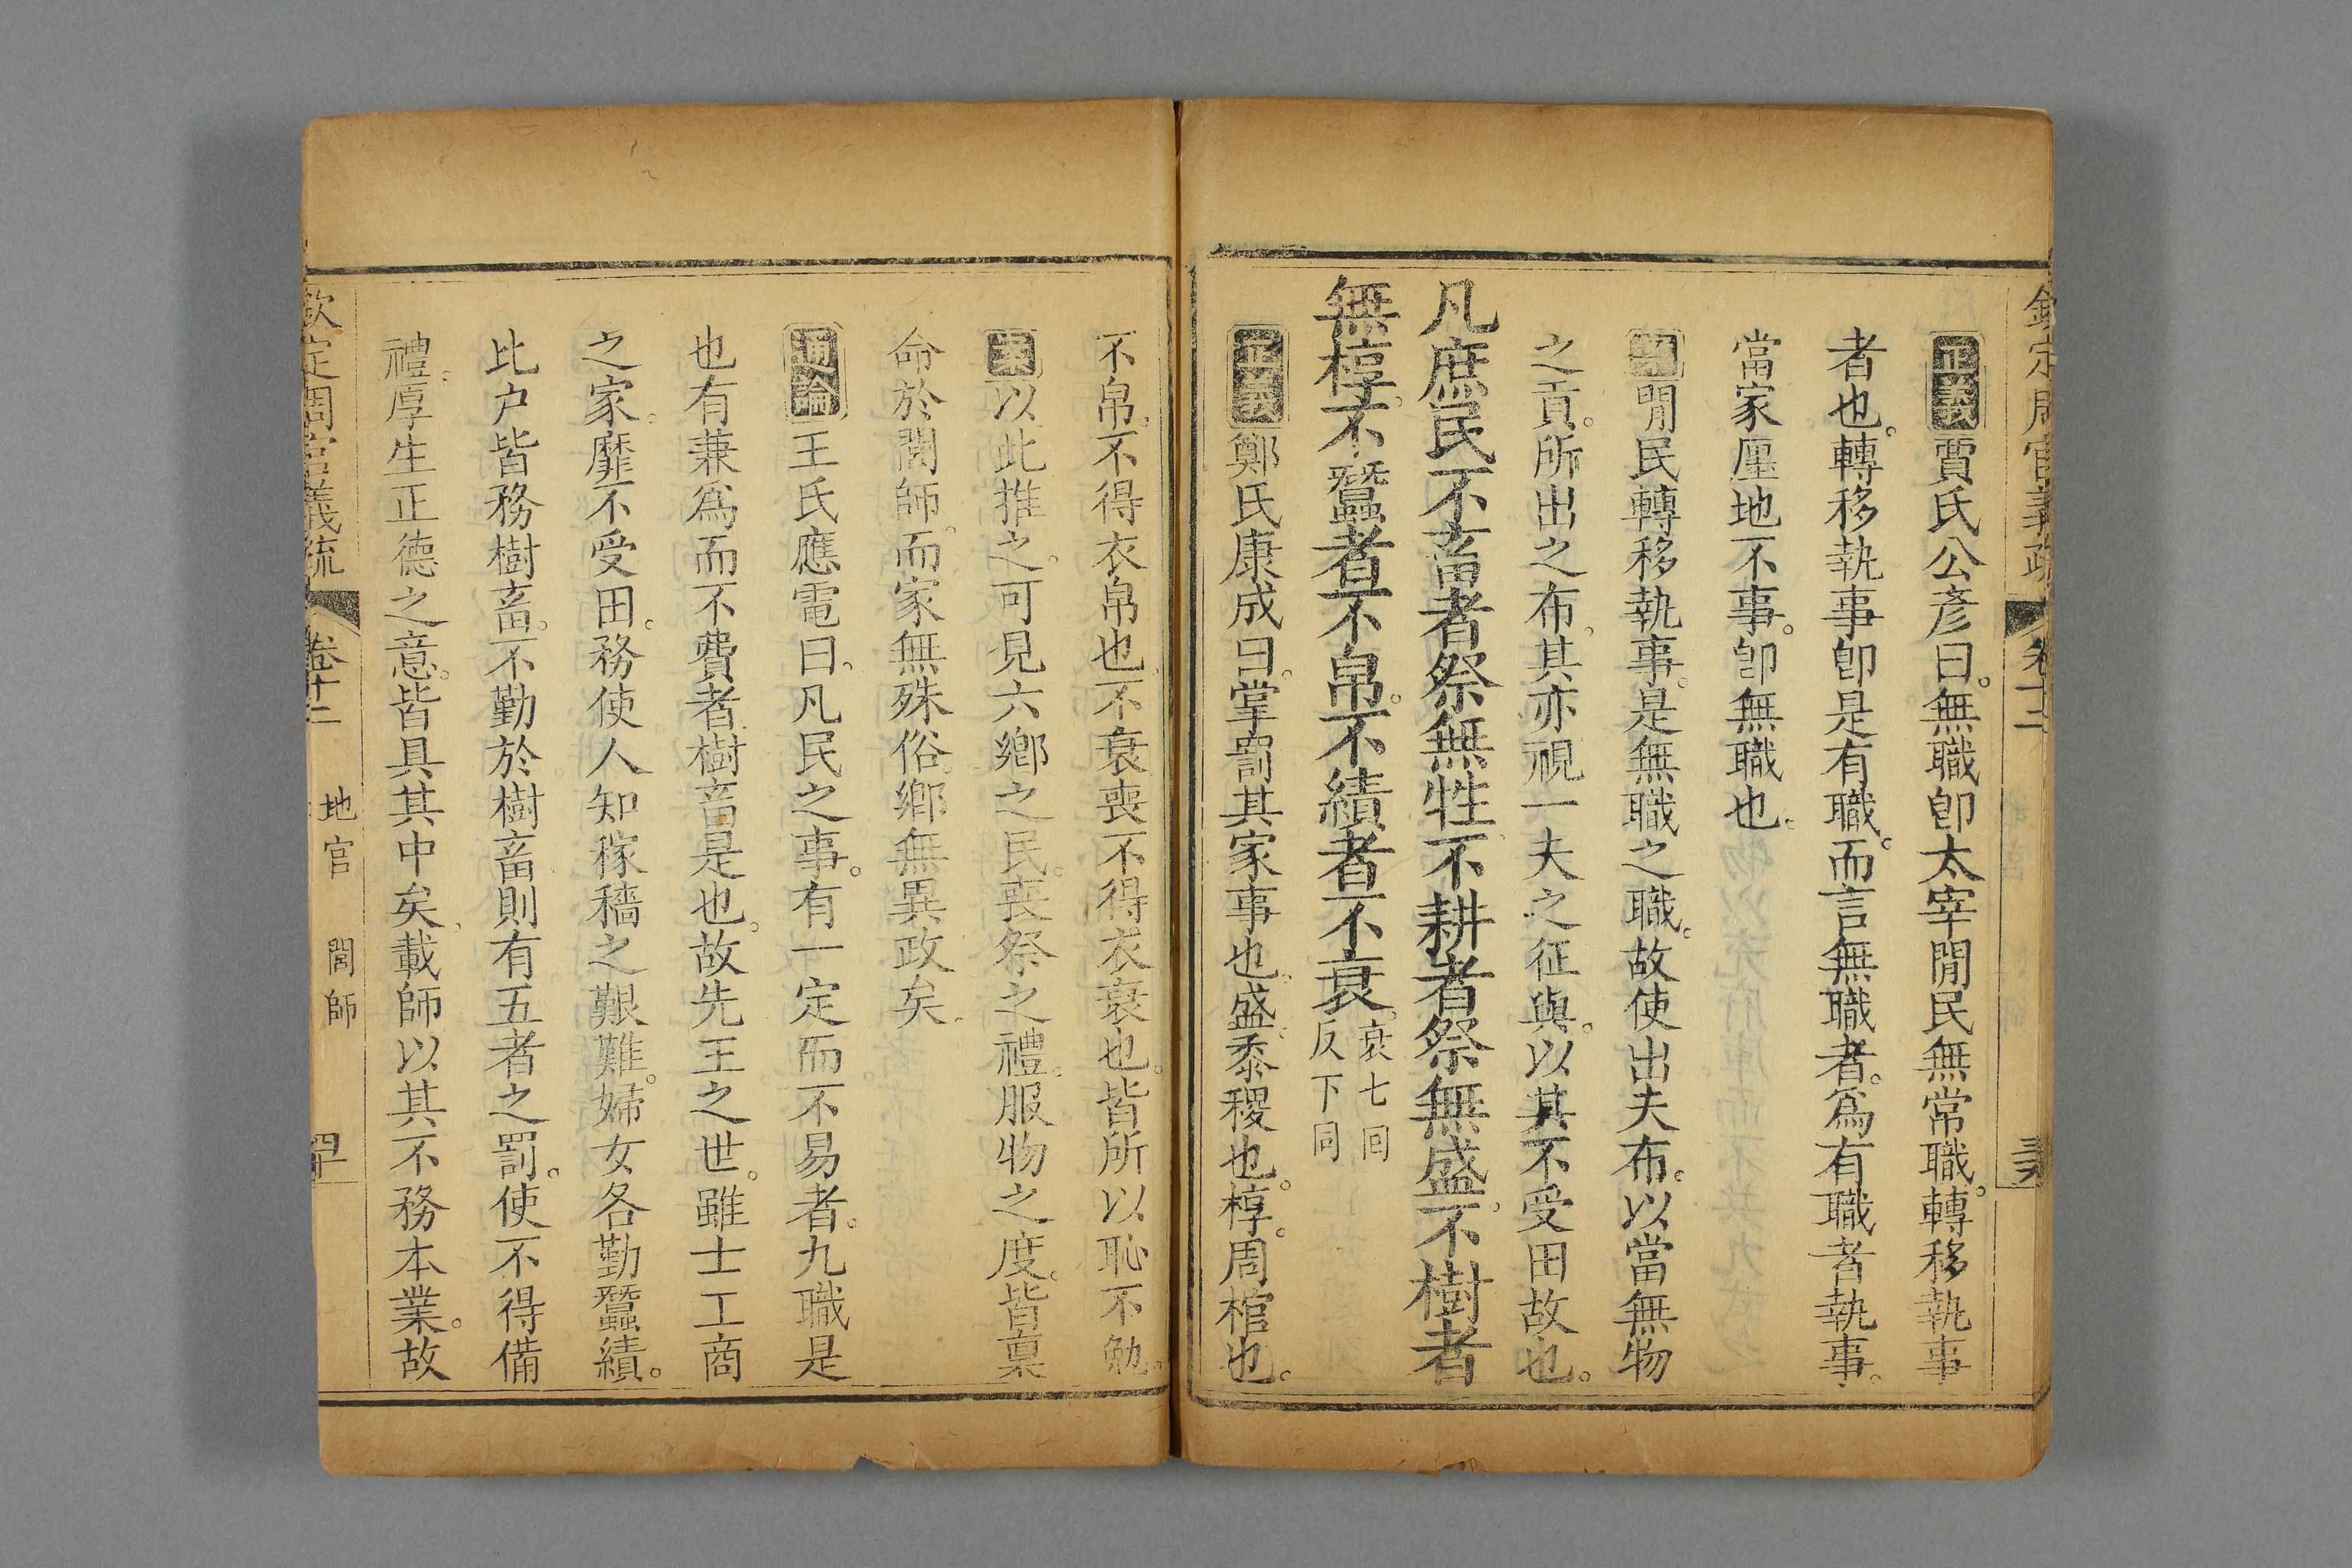 欽定周官義疏 卷十二
正義賈氏公彥曰。無職卽太宰閒民無常職。轉移執事
者也。轉移執事卽是有職。而言無職者。爲有職者執事。
當家廛地不事。卽無職也。
案閒民轉移執事。是無職之職。故使出夫布。以當無物
之貢。所出之布。其亦視一夫之征與。以其不受田故也。
凡庶民不畜者祭無牲不耕者祭無盛。不樹者
無椁。不蠶者不帛。不績者不衰。衰七回反下同
正義鄭氏康成曰。掌罰其家事也。盛。黍稷也。椁。周棺也。
不帛。不得衣帛也。不衰喪不得衣衰也。皆所以恥不勉。
案以此推之。可見六鄉之民。喪祭之禮。服物之度。皆稟
命於閭師。而家無殊俗。鄉無異政矣。
通論王氏應電曰。凡民之事。有一定而不易者。九職是
也有兼爲而不費者樹畜是也。故先王之世。雖士工商
之家。靡不受田。務使人知稼穡之艱難。婦女各勤蠶績。
比户皆務樹畜。不勤於樹畜則有五者之罰。使不得備
禮。厚生正德之意。皆具其中矣。載師以其不務本業。故
欽定周官義疏 卷十二 地官 閭師 四十